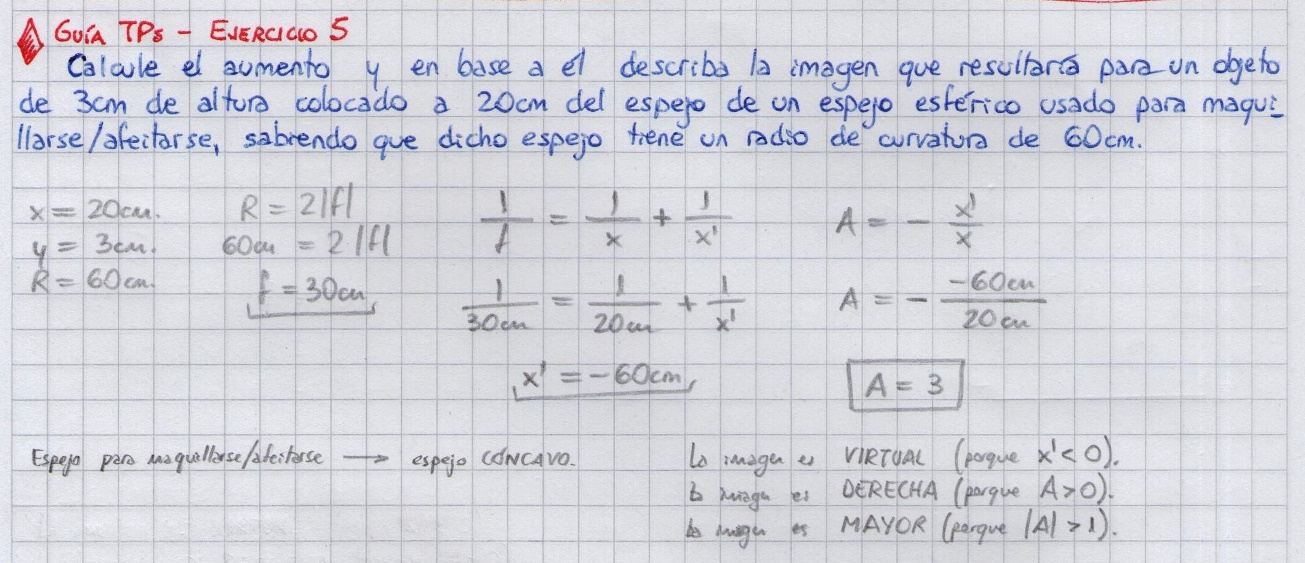 GUÍA TPs - EJERCICIO 5
Calcule el aumento y en base a él describa la imagen que resultaría para un objeto
de 3cm de altura colocado a 20cm del espejo de un espejo esférico usado para maqui-
llarse/afeitarse, sabiendo que dicho espejo tiene un radio de curvatura de 60cm.
x = 20cm.
y = 3cm.
R = 60cm.
R = 2|f|
60cm = 2|f|
f = 30cm
1/f = 1/x + 1/x'
1/30cm = 1/20cm + 1/x'
x' = -60cm
A = - x'/x
A = - -60cm/20cm
A = 3
Espejo para maquillarse/afeitarse → espejo CÓNCAVO.
La imagen es VIRTUAL (porque x' < 0).
La imagen es DERECHA (porque A > 0).
La imagen es MAYOR (porque |A| > 1).